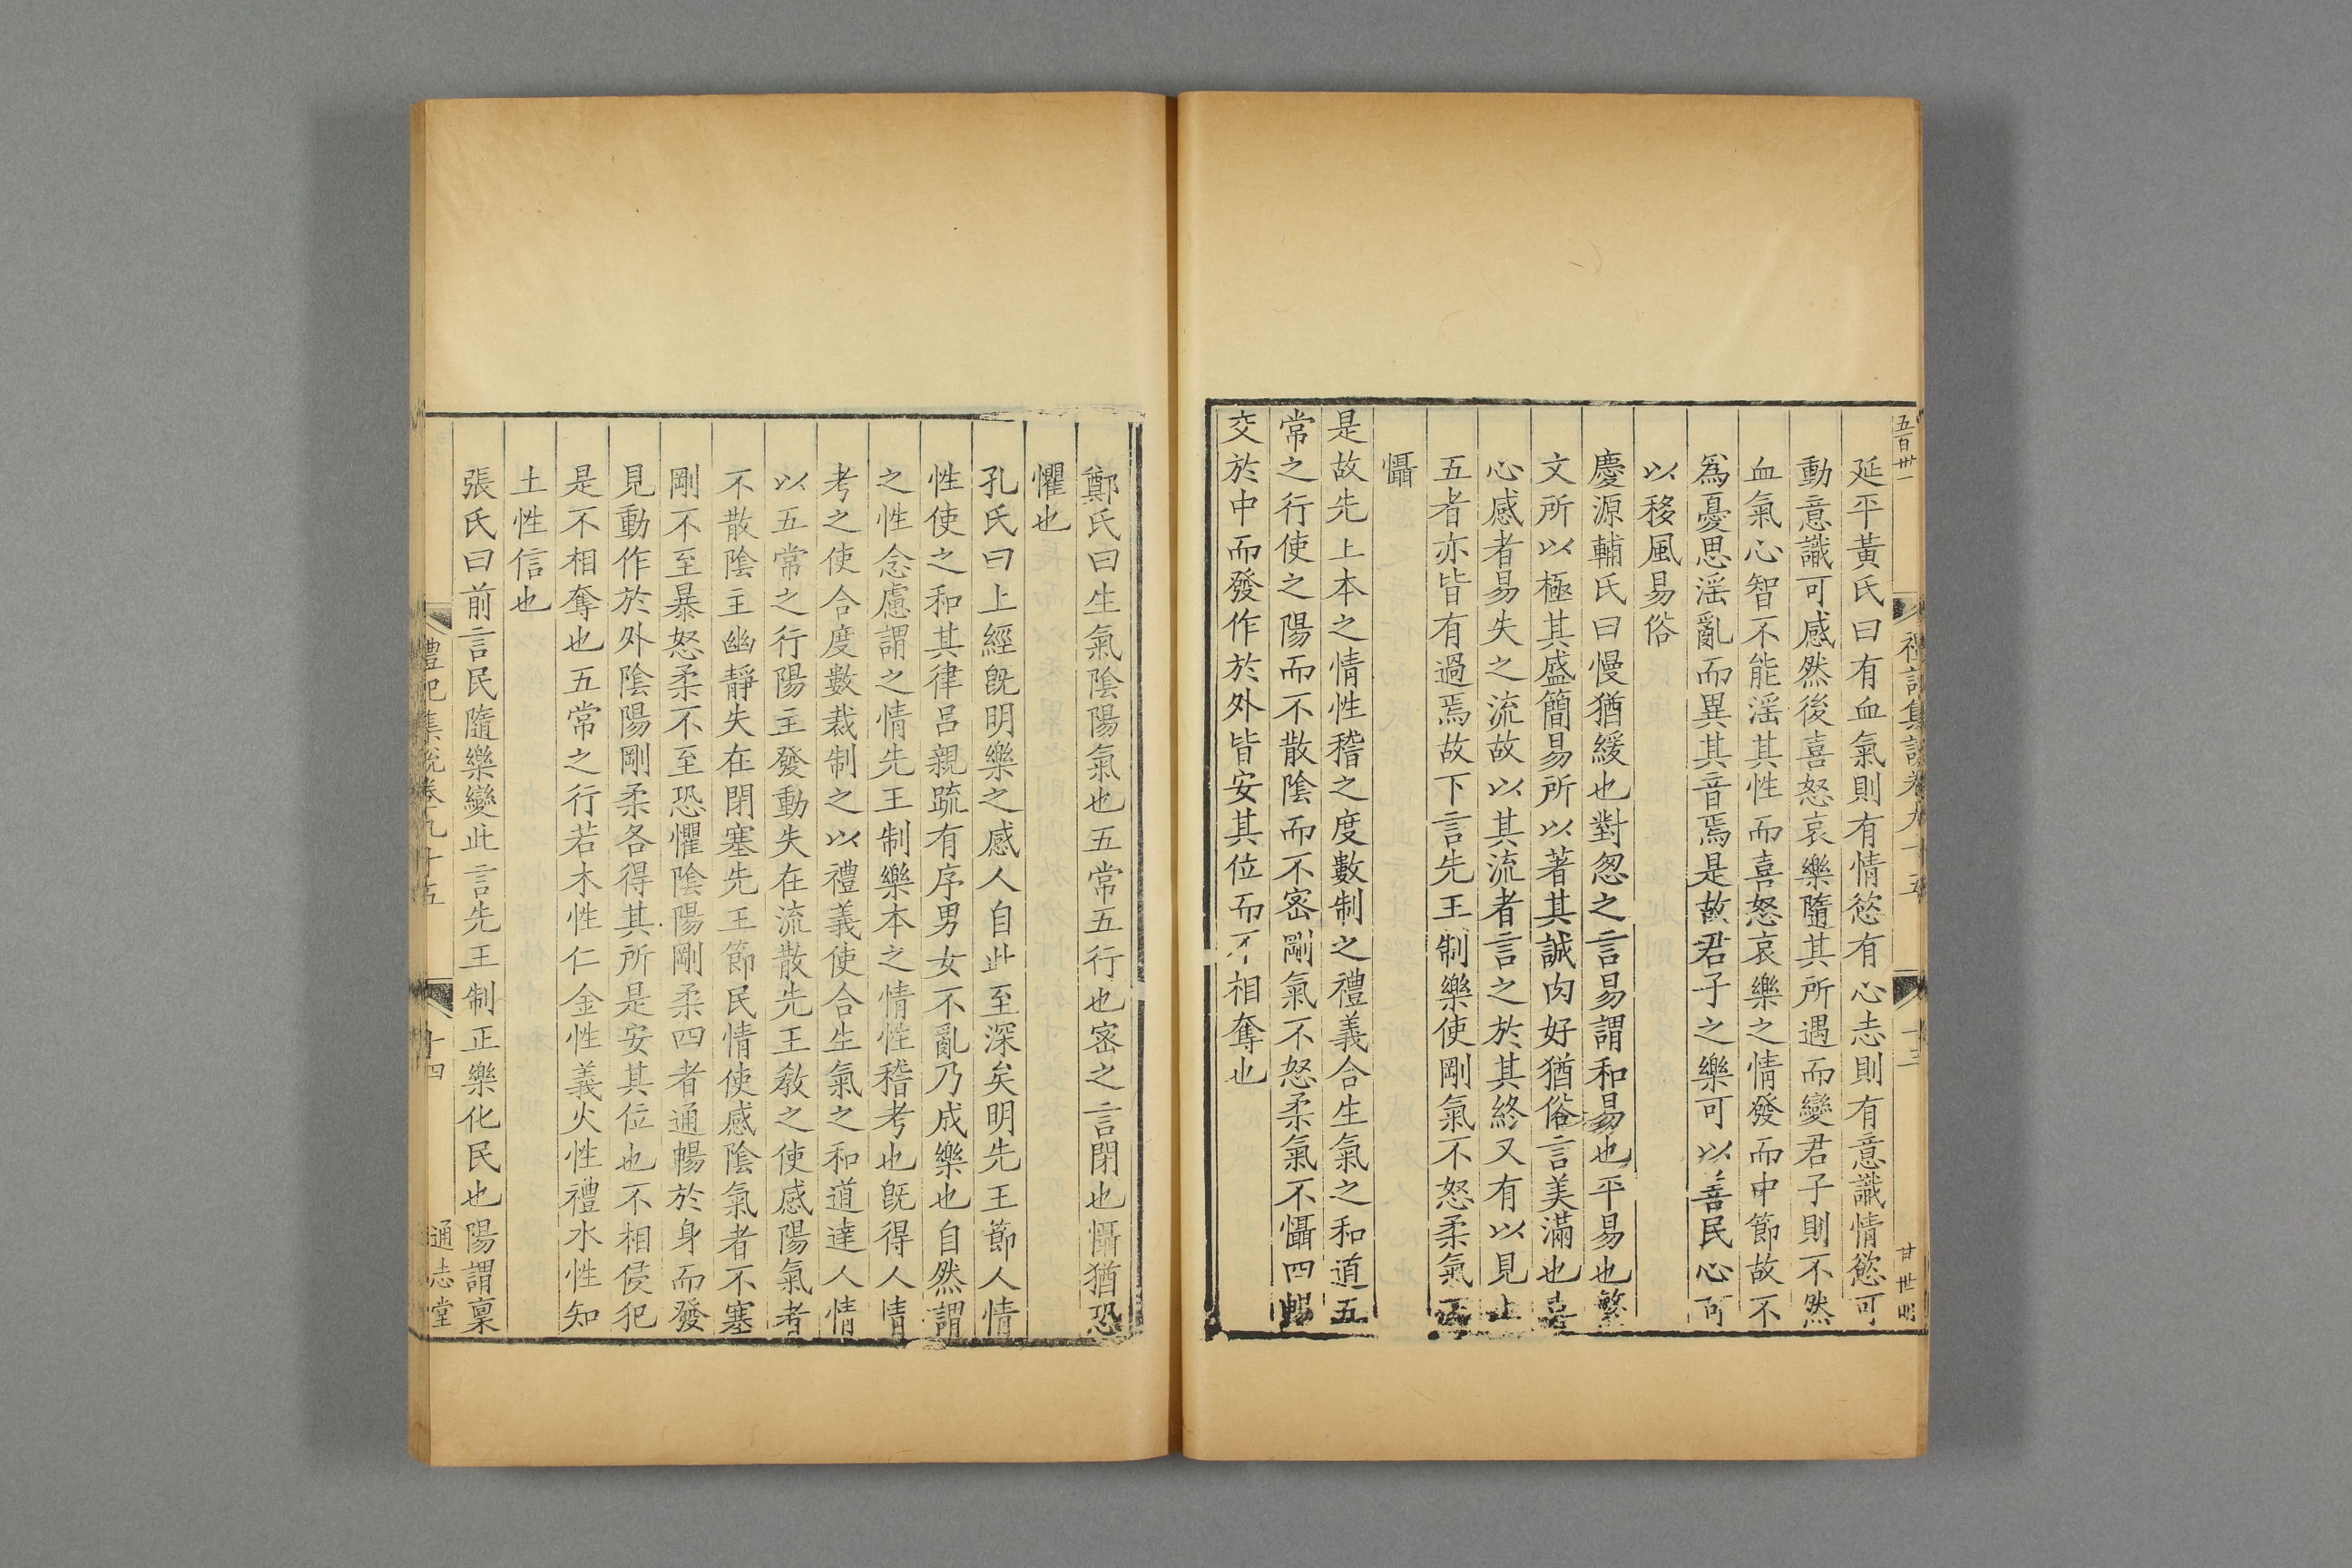 五百卅一
禮記集說卷九十五
十三
甘世明
延平黃氏曰有血氣則有情慾有心志則有意識情慾可
動意識可感然後喜怒哀樂隨其所遇而變君子則不然
血氣心智不能滛其性而喜怒哀樂之情發而中節故不
爲憂思滛亂而異其音焉是故君子之樂可以善民心可
以移風易俗
慶源輔氏曰慢猶緩也對忽之言易謂和易也平易也繁
文所以極其盛簡易所以著其誠肉好猶俗言美滿也喜
心感者易失之流故以其流者言之於其終又有以見上
五者亦皆有過焉故下言先王制樂使剛氣不怒柔氣不
懾
是故先上本之情性稽之度數制之禮義合生氣之和道五
常之行使之陽而不散陰而不密剛氣不怒柔氣不懾四暢
交於中而發作於外皆安其位而不相奪也
鄭氏曰生氣陰陽氣也五常五行也密之言閉也懾猶恐
懼也
孔氏曰上經旣明樂之感人自此至深矣明先王節人情
性使之和其律呂親䟽有序男女不亂乃成樂也自然謂
之性念慮謂之情先王制樂本之情性稽考也旣得人情
考之使合度數裁制之以禮義使合生氣之和道達人情
以五常之行陽主發動失在流散先王敎之使感陽氣者
不散陰主幽靜失在閉塞先王節民情使感陰氣者不塞
剛不至暴怒柔不至恐懼陰陽剛柔四者通暢於身而發
見動作於外陰陽剛柔各得其所是安其位也不相侵犯
是不相奪也五常之行若木性仁金性義火性禮水性知
土性信也
張氏曰前言民隨樂變此言先王制正樂化民也陽謂稟
禮記集說卷九十五
十四
通志堂